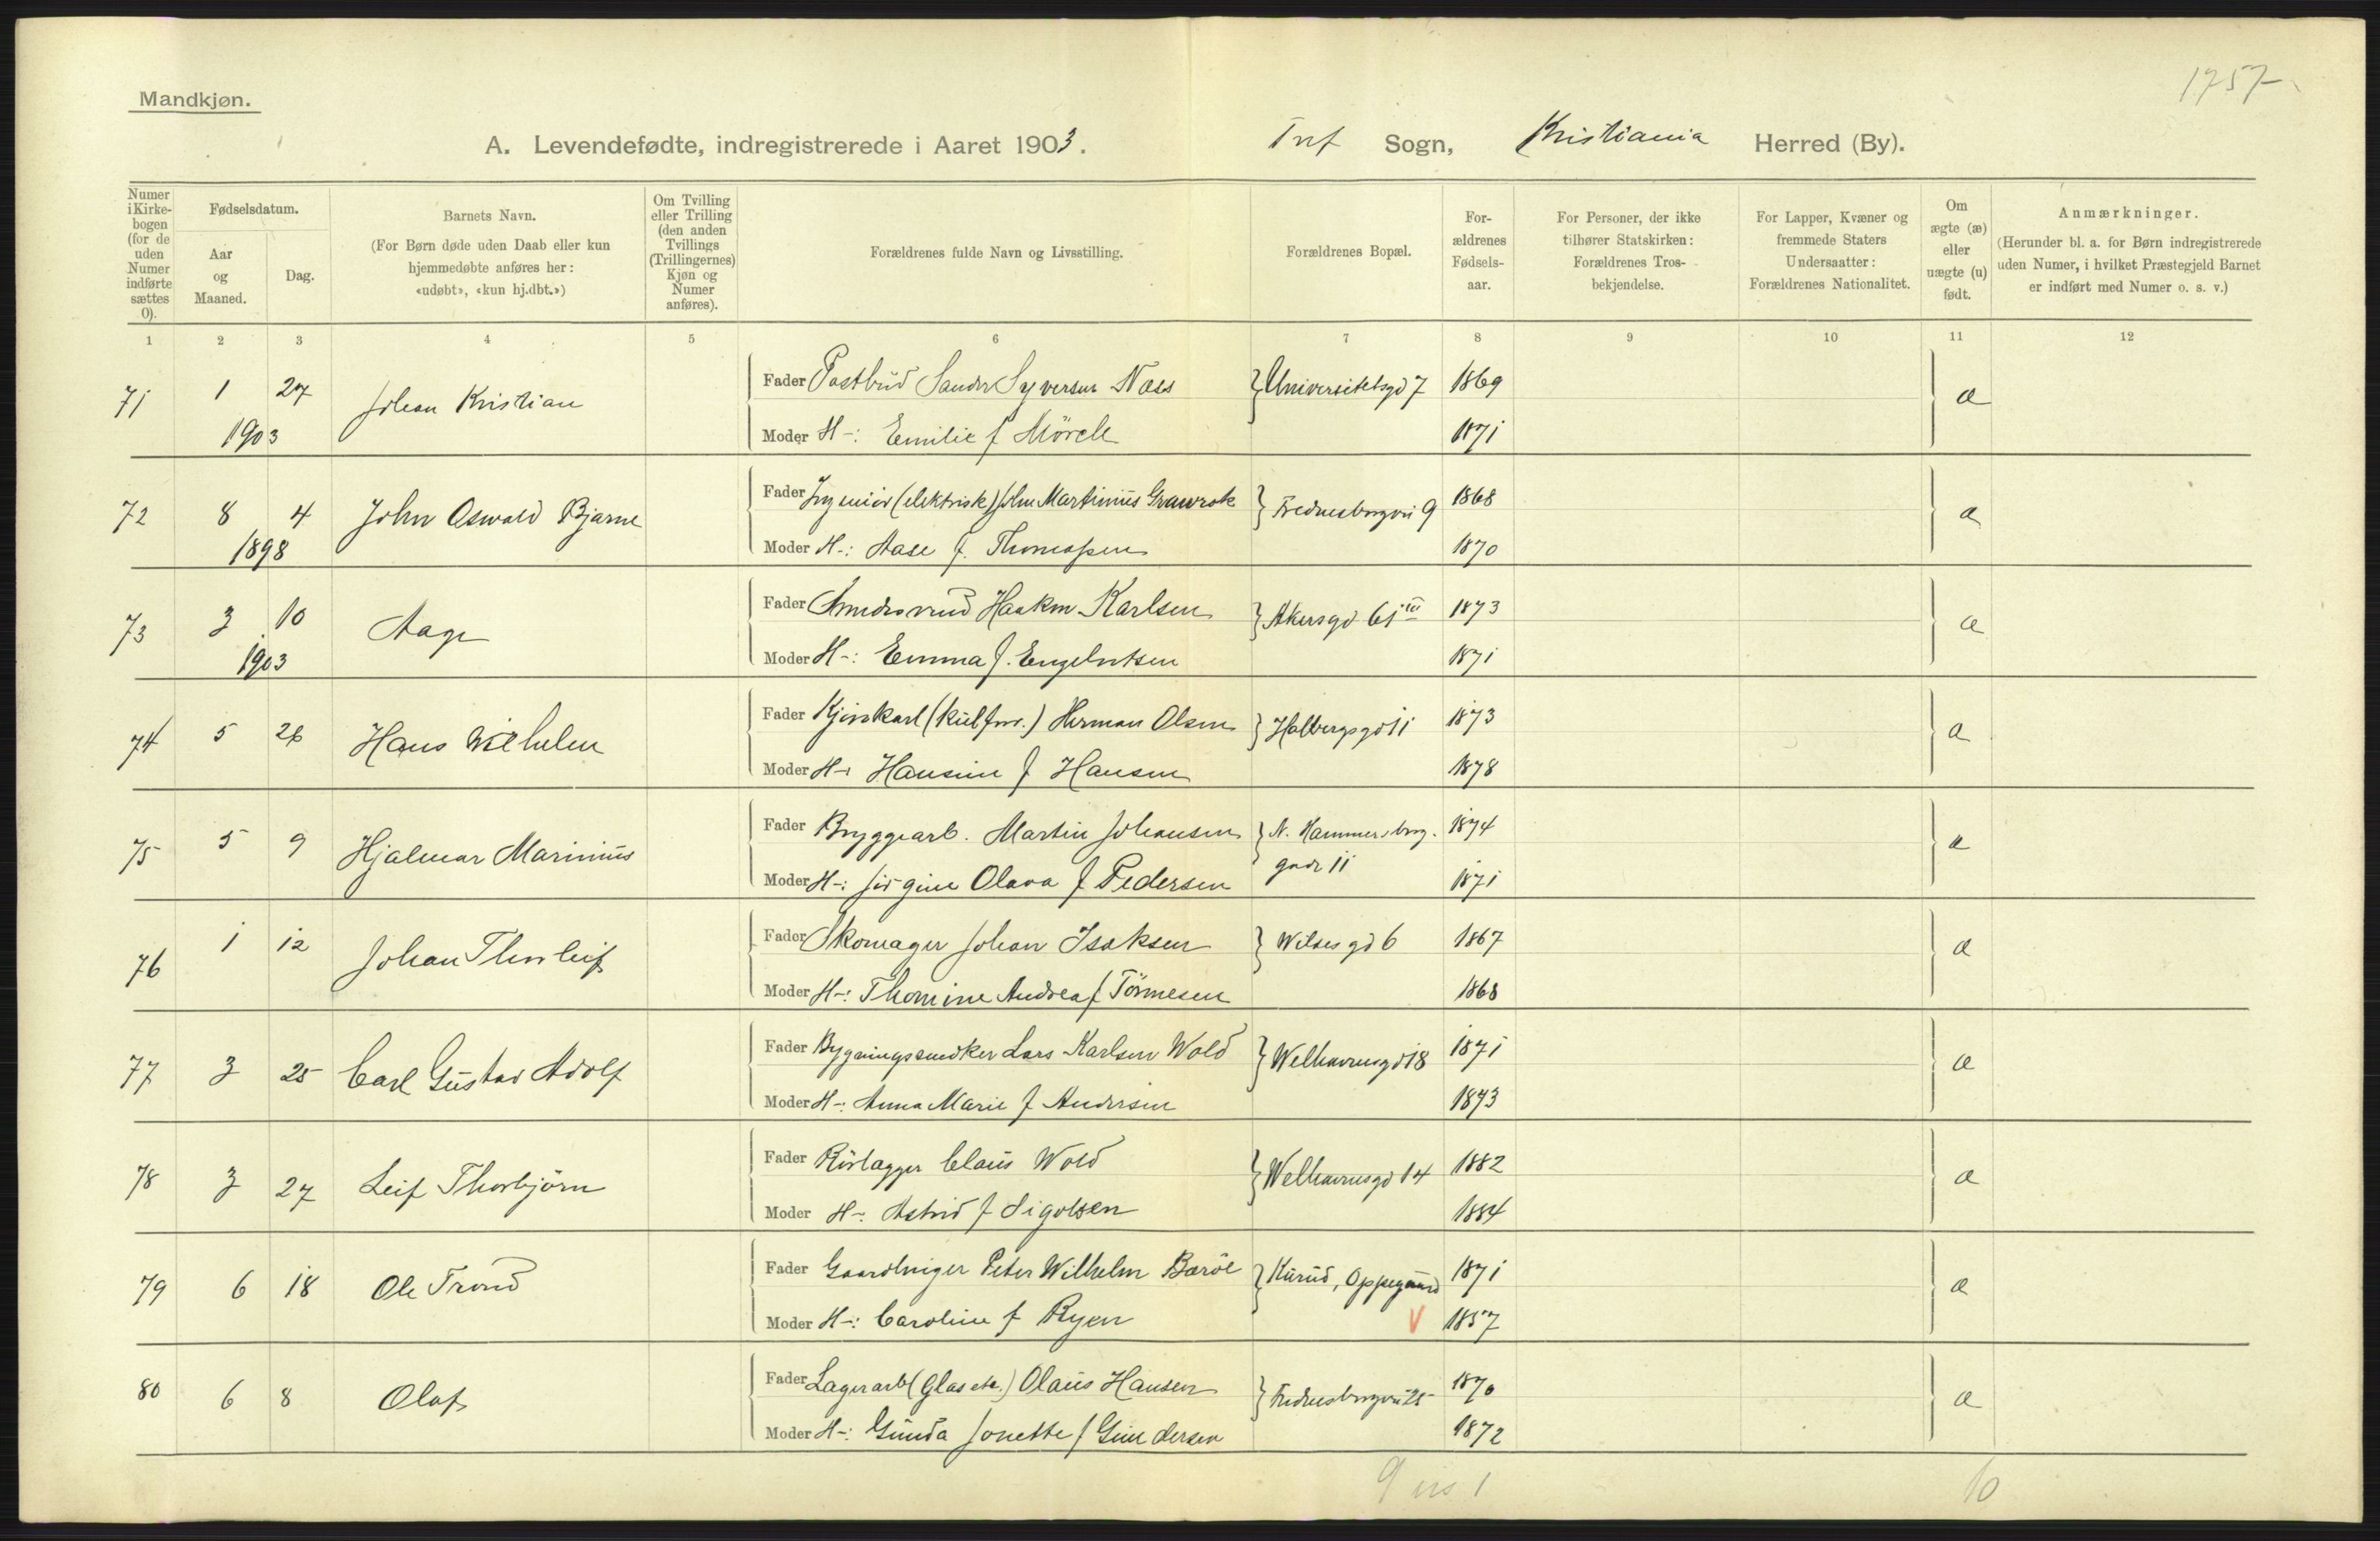 1757
Mandkjøn.
A. Levendefødte, indregistrerede i Aaret 1903. Tref Sogn, Kristiania Herred (By).
Numer i Kirkebogen (for de uden Numer indførte sættes 0).
Fødselsdatum.
Aar og Maaned.
Dag.
Barnets Navn.
(For Børn døde uden Daab eller kun hjemmedøbte anføres her: «udøbt», «kun hj.dbt.»)
Om Tvilling eller Trilling (den anden Tvillings (Trillingernes) Kjøn og Numer anføres).
Forældrenes fulde Navn og Livsstilling.
Forældrenes Bopæl.
Forældrenes Fødselsaar.
For Personer, der ikke tilhører Statskirken: Forældrenes Trosbekjendelse.
For Lapper, Kvæner og fremmede Staters Undersaatter: Forældrenes Nationalitet.
Om ægte (æ) eller uægte (u) født.
Anmærkninger.
(Herunder bl. a. for Børn indregistrerede uden Numer, i hvilket Præstegjeld Barnet er indført med Numer o. s. v.)
1 2 3 4 5 6 7 8 9 10 11 12
71 1 27 1903 Johan Kristian Fader Postbud Sander Syversen Næss Universitetsgd 7 1869 æ
Moder H-: Emilie f Mörch 1871
72 8 4 1898 John Oswald Bjarne Fader Ingeniör (elektrisk) John Martinius Grawrok Fredensborgvei 9 1868 æ
Moder H-: Aase f. Thomassen 1870
73 3 10 1903 Aage Fader Smedsvend Haakon Karlsen Akersgd 61 III 1873 æ
Moder H-: Emma f. Engebretsen 1871
74 5 26 Hans Wilhelm Fader Kjørekarl (kulforr.) Herman Olsen Holbergsgd 11 1873 æ
Moder H-: Hansine f Hansen 1878
75 5 9 Hjalmar Marinius Fader Bryggearb. Martin Johansen N. Hammersborg. 1874 æ
gade 11
Moder H-: Jörgine Olava f Pedersen 1871
76 1 12 Johan Thorleif Fader Skomager Johan Isaksen Wilses gd 6 1867 æ
Moder H-: Thomine Andrea f Tönnesen 1868
77 3 25 Carl Gustav Adolf Fader Bygningssnedker Lars Karlsen Wold Welhavensgd 18 1871 æ
Moder H-: Anna Marie f Andersen 1873
78 3 27 Leif Thorbjörn Fader Rörlægger Claus Wold Welhavensgd 14 1882 æ
Moder H-: Astrid f Sigvolsen 1884
79 6 18 Ole Trond Fader Gaardbruger Peter Wilhelm Baröe Kurud, Oppegaard 1871 æ
Moder H-: Caroline f Ryen V 1857
80 6 8 Olaf Fader Lagerarb (Glas etc.) Olaus Hansen Fredensborgvei 25 1870 æ
Moder H-: Gunda Jonette f Gundersen 1872
9 us 1 10